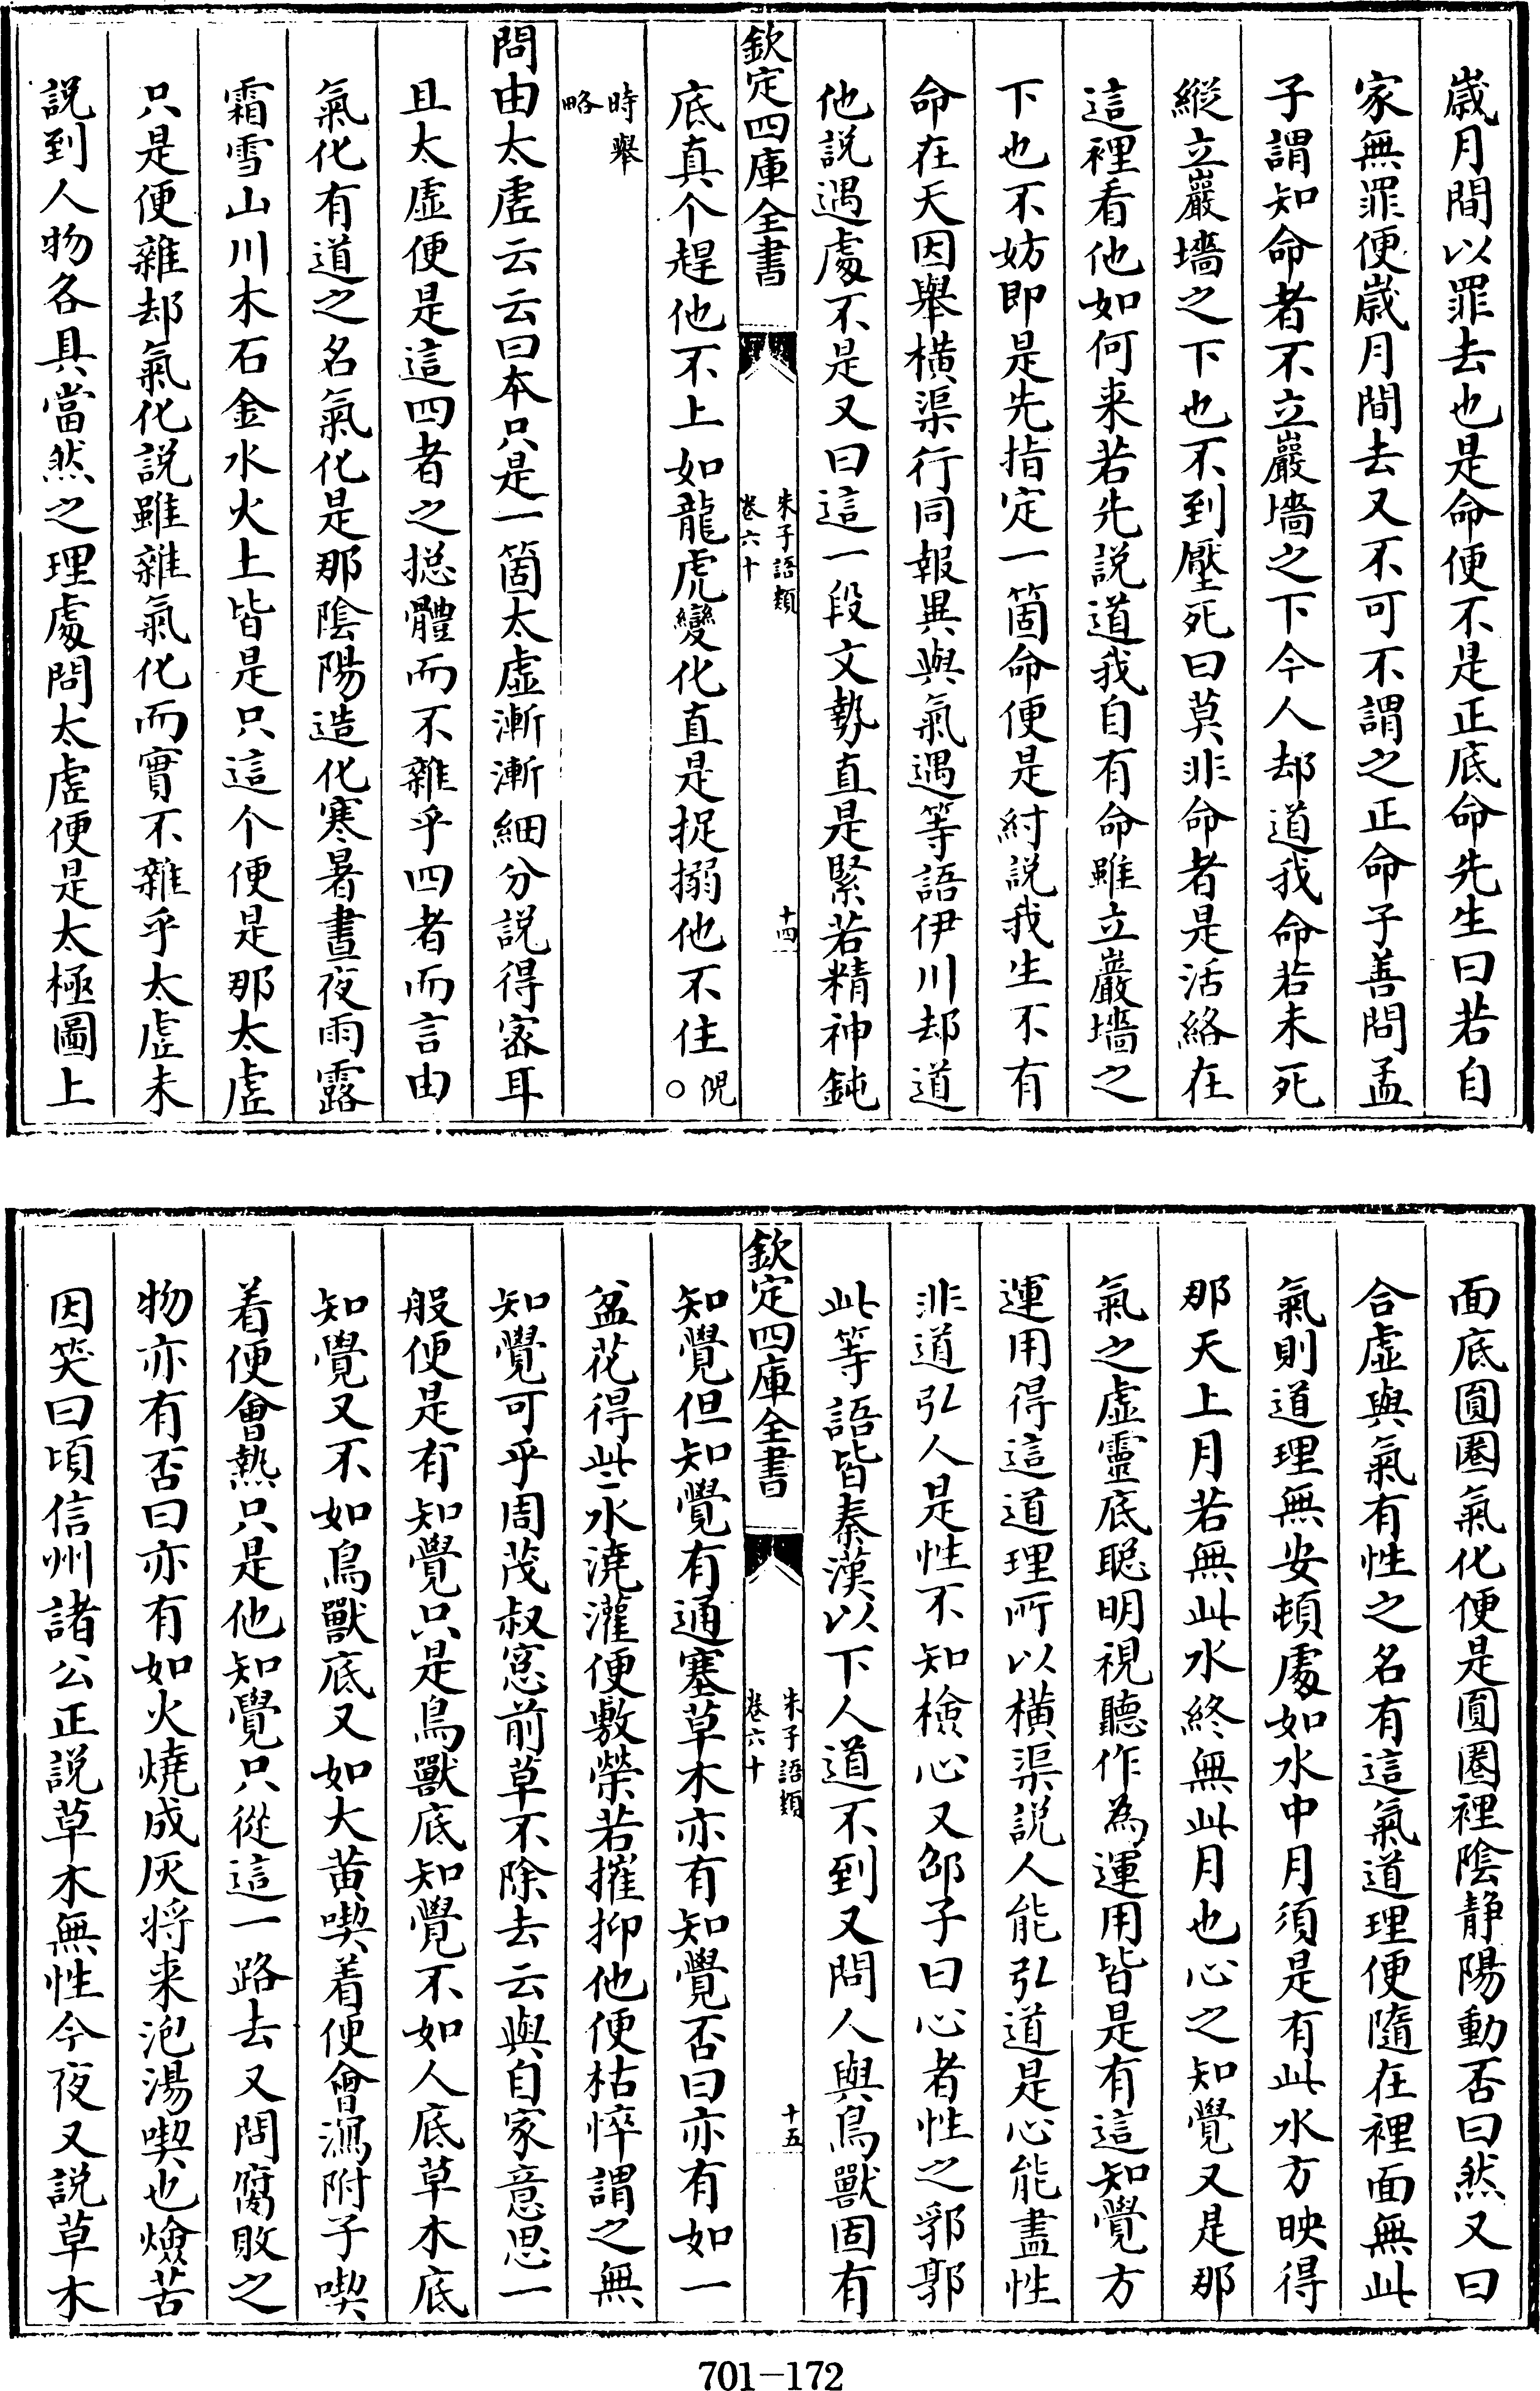 歲月間以罪去也是命便不是正底命先生曰若自
家無罪便歲月間去又不可不謂之正命子善問孟
子謂知命者不立巖墻之下今人却道我命若未死
縱立巖墻之下也不到壓死曰莫非命者是活絡在
這裡看他如何来若先説道我自有命雖立巖墻之
下也不妨即是先指定一箇命便是紂説我生不有
命在天因舉橫渠行同報異與氣遇等語伊川却道
他説遇處不是又曰這一段文勢直是緊若精神鈍
欽定四庫全書
朱子語類
卷六十
十四
底真个趕他不上如龍虎變化直是捉搦他不住 倪○
時舉
略
問由太虛云云曰本只是一箇太虛漸漸細分説得宻耳
且太虛便是這四者之摠體而不雜乎四者而言由
氣化有道之名氣化是那陰陽造化寒暑晝夜雨露
霜雪山川木石金水火土皆是只這个便是那太虛
只是便雜却氣化説雖雜氣化而實不雜乎太虛未
説到人物各具當然之理處問太虛便是太極圖上
面底圓圈氣化便是圓圈裡陰靜陽動否曰然又曰
合虛與氣有性之名有這氣道理便隨在裡面無此
氣則道理無安頓處如水中月須是有此水方映得
那天上月若無此水終無此月也心之知覺又是那
氣之虛靈底聰明視聽作為運用皆是有這知覺方
運用得這道理所以橫渠説人能弘道是心能盡性
非道弘人是性不知檢心又邵子曰心者性之郛郭
此等語皆秦漢以下人道不到又問人與鳥獸固有
欽定四庫全書
朱子語類
卷六十
十五
知覺但知覺有通塞草木亦有知覺否曰亦有如一
盆花得些水澆灌便敷榮若摧抑他便枯悴謂之無
知覺可乎周茂叔窓前草不除去云與自家意思一
般便是有知覺只是鳥獸底知覺不如人底草木底
知覺又不如鳥獸底又如大黄喫着便會瀉附子喫
着便會熱只是他知覺只從這一路去又問腐敗之
物亦有否曰亦有如火燒成灰將来泡湯喫也焰苦
因笑曰頃信州諸公正説草木無性今夜又説草木